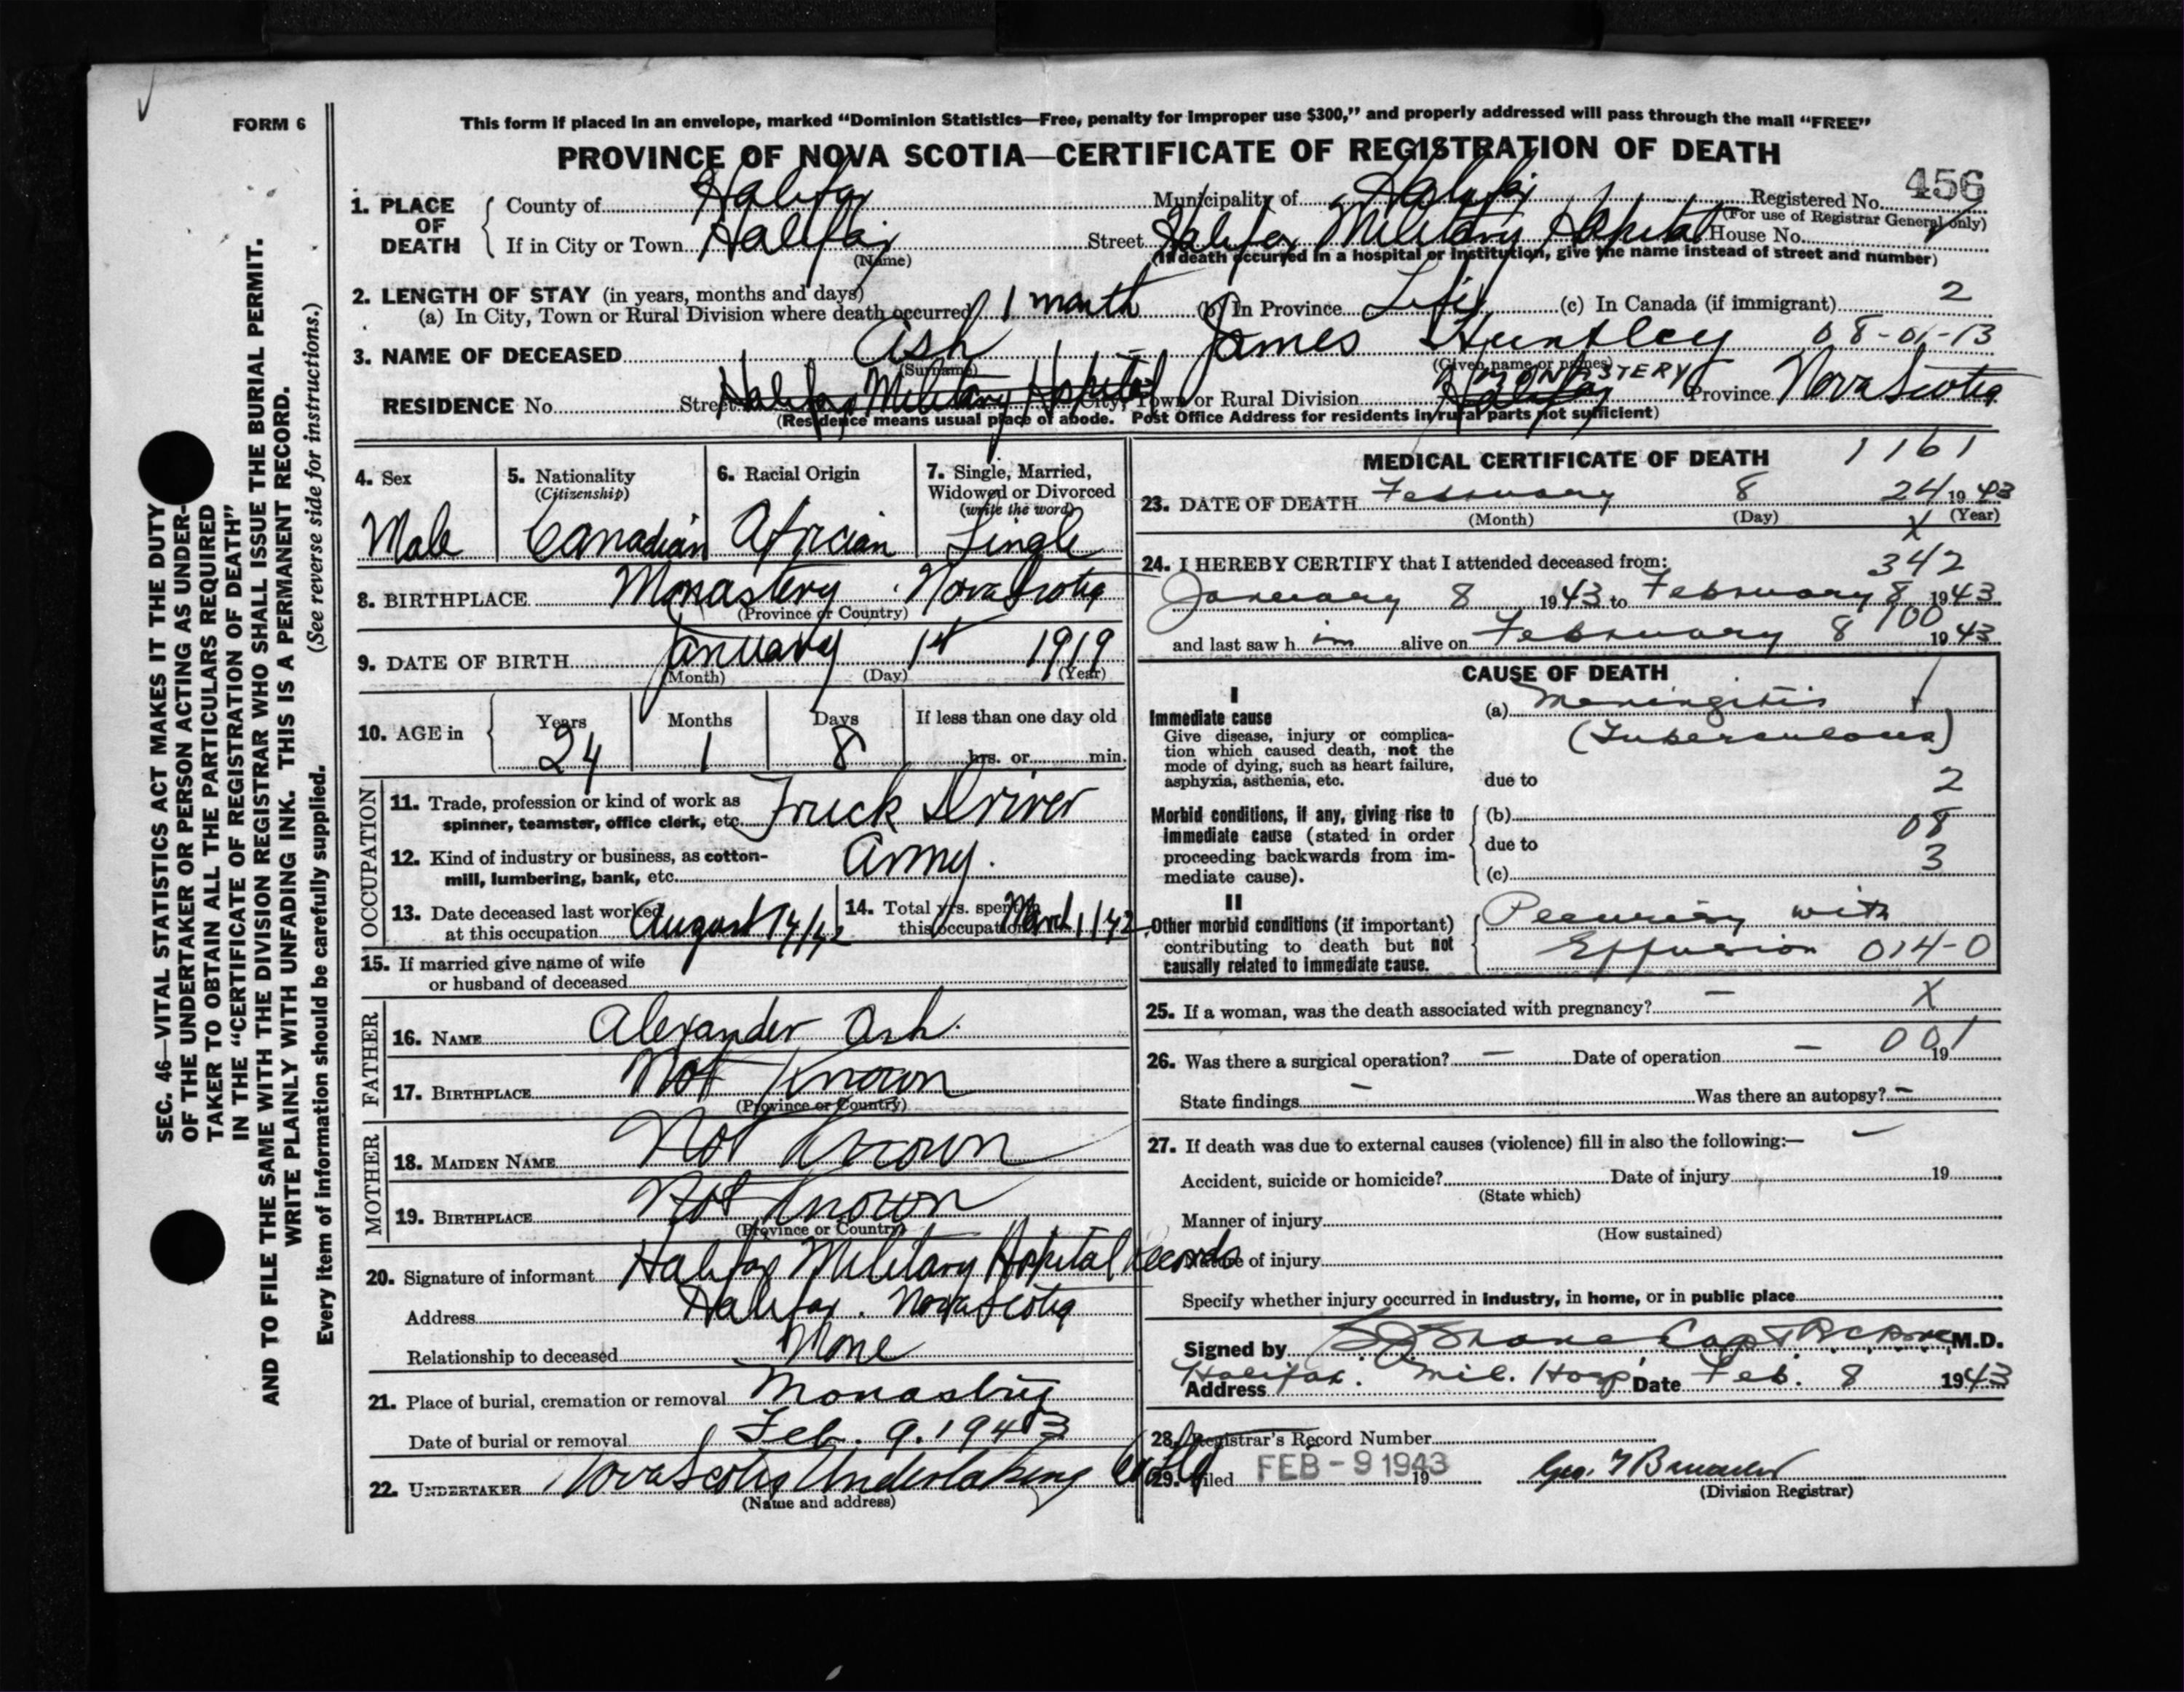 FORM 6
This form if placed in an envelope, marked "Dominion Statistics—Free, penalty for improper use $300," and properly addressed will pass through the mail "FREE"
PROVINCE OF NOVA SCOTIA—CERTIFICATE OF REGISTRATION OF DEATH
456
1. PLACE OF DEATH County of Halifax Municipality of Halifax Registered No.
(For use of Registrar General only)
If in City or Town Halifax Street Halifax Military Hospital House No.
(Name) (If death occurred in a hospital or institution, give the name instead of street and number)
2. LENGTH OF STAY (in years, months and days)
(a) In City, Town or Rural Division where death occurred 1 month (b) In Province Life (c) In Canada (if immigrant) 2
3. NAME OF DECEASED Ash - James Huntley 08-01-13
(Surname) (Given name or names)
RESIDENCE No. Street Halifax Military Hospital City, Town or Rural Division Halifax MONASTERY Province Nova Scotia
(Residence means usual place of abode. Post Office Address for residents in rural parts not sufficient)
4. Sex 5. Nationality (Citizenship) 6. Racial Origin 7. Single, Married, Widowed or Divorced (write the word)
Male Canadian Africian Single
8. BIRTHPLACE Monastery Nova Scotia
(Province or Country)
9. DATE OF BIRTH January 1st 1919
(Month) (Day) (Year)
10. AGE in Years Months Days If less than one day old
24 1 8 hrs. or min.
OCCUPATION
11. Trade, profession or kind of work as spinner, teamster, office clerk, etc. Truck Driver
12. Kind of industry or business, as cotton-mill, lumbering, bank, etc. Army.
13. Date deceased last worked at this occupation August 14/42
14. Total yrs. spent in this occupation March 1/42
15. If married give name of wife
or husband of deceased
FATHER
16. NAME Alexander Ash.
17. BIRTHPLACE Not Known
(Province or Country)
MOTHER
18. MAIDEN NAME Not Known
19. BIRTHPLACE Not Known
(Province or Country)
20. Signature of informant Halifax Military Hospital Records
Address Halifax. Nova Scotia
Relationship to deceased None
21. Place of burial, cremation or removal Monastry
Date of burial or removal Feb. 9. 1943
22. UNDERTAKER Nova Scotia Undertaking Co Ltd
(Name and address)
MEDICAL CERTIFICATE OF DEATH 1161
23. DATE OF DEATH February 8 24 1943
(Month) (Day) (Year)
X
24. I HEREBY CERTIFY that I attended deceased from:
342
January 8 1943 to February 8 1943
100
and last saw h im alive on February 8 1943
CAUSE OF DEATH
I
Immediate cause
Give disease, injury or complica-
tion which caused death, not the
mode of dying, such as heart failure,
asphyxia, asthenia, etc.
(a) Meningitis
(Tuberculous)
due to 2
Morbid conditions, if any, giving rise to
immediate cause (stated in order
proceeding backwards from im-
mediate cause).
(b)
08
due to
3
(c)
II
Other morbid conditions (if important)
contributing to death but not
causally related to immediate cause.
Pleurisy with
Effusion 014-0
25. If a woman, was the death associated with pregnancy? - X
26. Was there a surgical operation? - Date of operation - 001 19
State findings - Was there an autopsy? -
27. If death was due to external causes (violence) fill in also the following:— -
Accident, suicide or homicide? Date of injury 19
(State which)
Manner of injury
(How sustained)
Nature of injury
Specify whether injury occurred in industry, in home, or in public place
Signed by Capt M.D.
Address Halifax. Mil. Hosp. Date Feb. 8 1943
28. Registrar's Record Number
29. Filed FEB - 9 1943 19
(Division Registrar)
SEC. 46—VITAL STATISTICS ACT MAKES IT THE DUTY
OF THE UNDERTAKER OR PERSON ACTING AS UNDER-
TAKER TO OBTAIN ALL THE PARTICULARS REQUIRED
IN THE "CERTIFICATE OF REGISTRATION OF DEATH"
AND TO FILE THE SAME WITH THE DIVISION REGISTRAR WHO SHALL ISSUE THE BURIAL PERMIT.
WRITE PLAINLY WITH UNFADING INK. THIS IS A PERMANENT RECORD.
Every item of information should be carefully supplied. (See reverse side for instructions.)